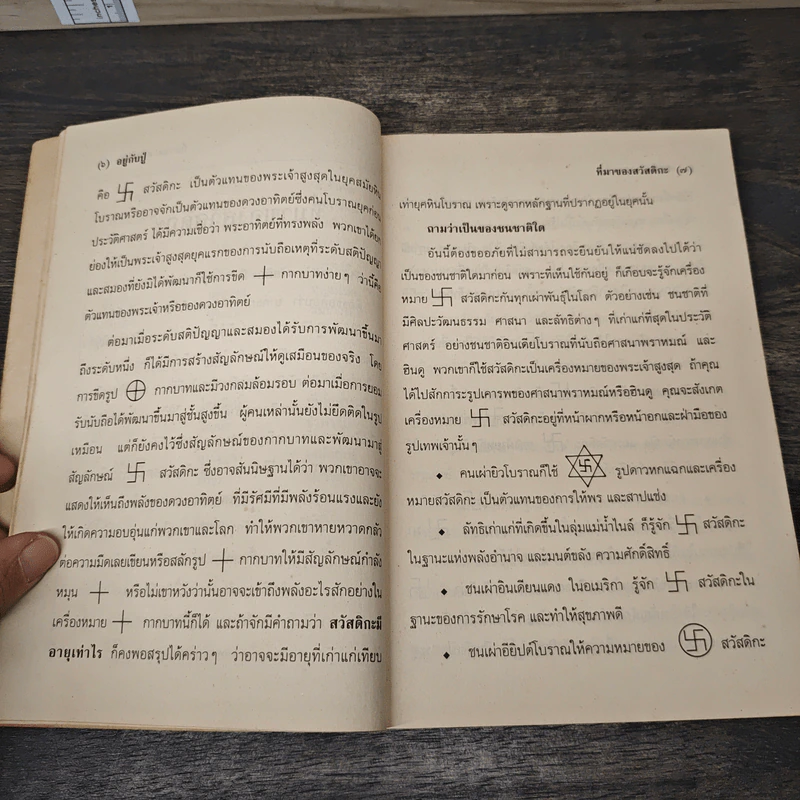 (๖) อยู่กับปู่
คือ 卐 สวัสดิกะ เป็นตัวแทนของพระเจ้าสูงสุดในยุคสมัยหิน
โบราณหรืออาจจักเป็นตัวแทนของดวงอาทิตย์ซึ่งคนโบราณยุคก่อน
ประวัติศาสตร์ ได้มีความเชื่อว่า พระอาทิตย์ที่ทรงพลัง พวกเขาได้ยก
ย่องให้เป็นพระเจ้าสูงสุดยุคแรกของการนับถือเหตุที่ระดับสติปัญญา
และสมองที่ยังมิได้พัฒนาก็ใช้การขีด + กากบาทง่ายๆ ว่านี้คือ
ตัวแทนของพระเจ้าหรือของดวงอาทิตย์
ต่อมาเมื่อระดับสติปัญญาและสมองได้รับการพัฒนาขึ้นมา
ถึงระดับหนึ่ง ก็ได้มีการสร้างสัญลักษณ์ให้ดูเสมือนของจริง โดย
การขีดรูป ⊕ กากบาทและมีวงกลมล้อมรอบ ต่อมาเมื่อการยอม
รับนับถือได้พัฒนาขึ้นมาสู่ขั้นสูงขึ้น ผู้คนเหล่านั้นยังไม่ยึดติดในรูป
เหมือน แต่ก็ยังคงไว้ซึ่งสัญลักษณ์ของกากบาทและพัฒนามาสู่
สัญลักษณ์ 卐 สวัสดิกะ ซึ่งอาจสันนิษฐานได้ว่า พวกเขาอาจจะ
แสดงให้เห็นถึงพลังของดวงอาทิตย์ ที่มีรัศมีที่มีพลังร้อนแรงและยัง
ให้เกิดความอบอุ่นแก่พวกเขาและโลก ทำให้พวกเขาหายหวาดกลัว
ต่อความมืดเลยเขียนหรือสลักรูป + กากบาทให้มีสัญลักษณ์กำลัง
หมุน + หรือไม่เขาหวังว่านั้นอาจจะเข้าถึงพลังอะไรสักอย่างใน
เครื่องหมาย + กากบาทนี้ก็ได้ และถ้าจักมีคำถามว่า สวัสดิกะมี
อายุเท่าไร ก็คงพอสรุปได้คร่าวๆ ว่าอาจจะมีอายุที่เก่าแก่เทียบ
ที่มาของสวัสดิกะ (๗)
เท่ายุคหินโบราณ เพราะดูจากหลักฐานที่ปรากฏอยู่ในยุคนั้น
ถามว่าเป็นของชนชาติใด
อันนี้ต้องขออภัยที่ไม่สามารถจะยืนยันให้แน่ชัดลงไปได้ว่า
เป็นของชนชาติใดมาก่อน เพราะที่เห็นใช้กันอยู่ ก็เกือบจะรู้จักเครื่อง
หมาย 卐 สวัสดิกะกันทุกเผ่าพันธุ์ในโลก ตัวอย่างเช่น ชนชาติที่
มีศิลปะวัฒนธรรม ศาสนา และลัทธิต่างๆ ที่เก่าแก่ที่สุดในประวัติ
ศาสตร์ อย่างชนชาติอินเดียโบราณที่นับถือศาสนาพราหมณ์ และ
ฮินดู พวกเขาก็ใช้สวัสดิกะเป็นเครื่องหมายของพระเจ้าสูงสุด ถ้าคุณ
ได้ไปสักการะรูปเคารพของศาสนาพราหมณ์หรือฮินดู คุณจะสังเกต
เครื่องหมาย 卐 สวัสดิกะอยู่ที่หน้าผากหรือหน้าอกและฝ่ามือของ
รูปเทพเจ้านั้นๆ
♦ คนเผ่ายิวโบราณก็ใช้ 卐 รูปดาวหกแฉกและเครื่อง
หมายสวัสดิกะ เป็นตัวแทนของการให้พร และสาปแช่ง
♦ ลัทธิเก่าแก่ที่เกิดขึ้นในลุ่มแม่น้ำไนล์ ก็รู้จัก 卐 สวัสดิกะ
ในฐานะแห่งพลังอำนาจ และมนต์ขลัง ความศักดิ์สิทธิ์
♦ ชนเผ่าอินเดียนแดง ในอเมริกา รู้จัก 卐 สวัสดิกะใน
ฐานะของการรักษาโรค และทำให้สุขภาพดี
♦ ชนเผ่าอียิปต์โบราณให้ความหมายของ 卐 สวัสดิกะ